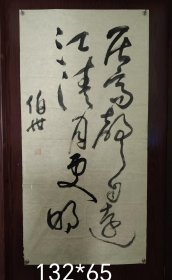 居高声自远
江清月更明
伯世
132*65